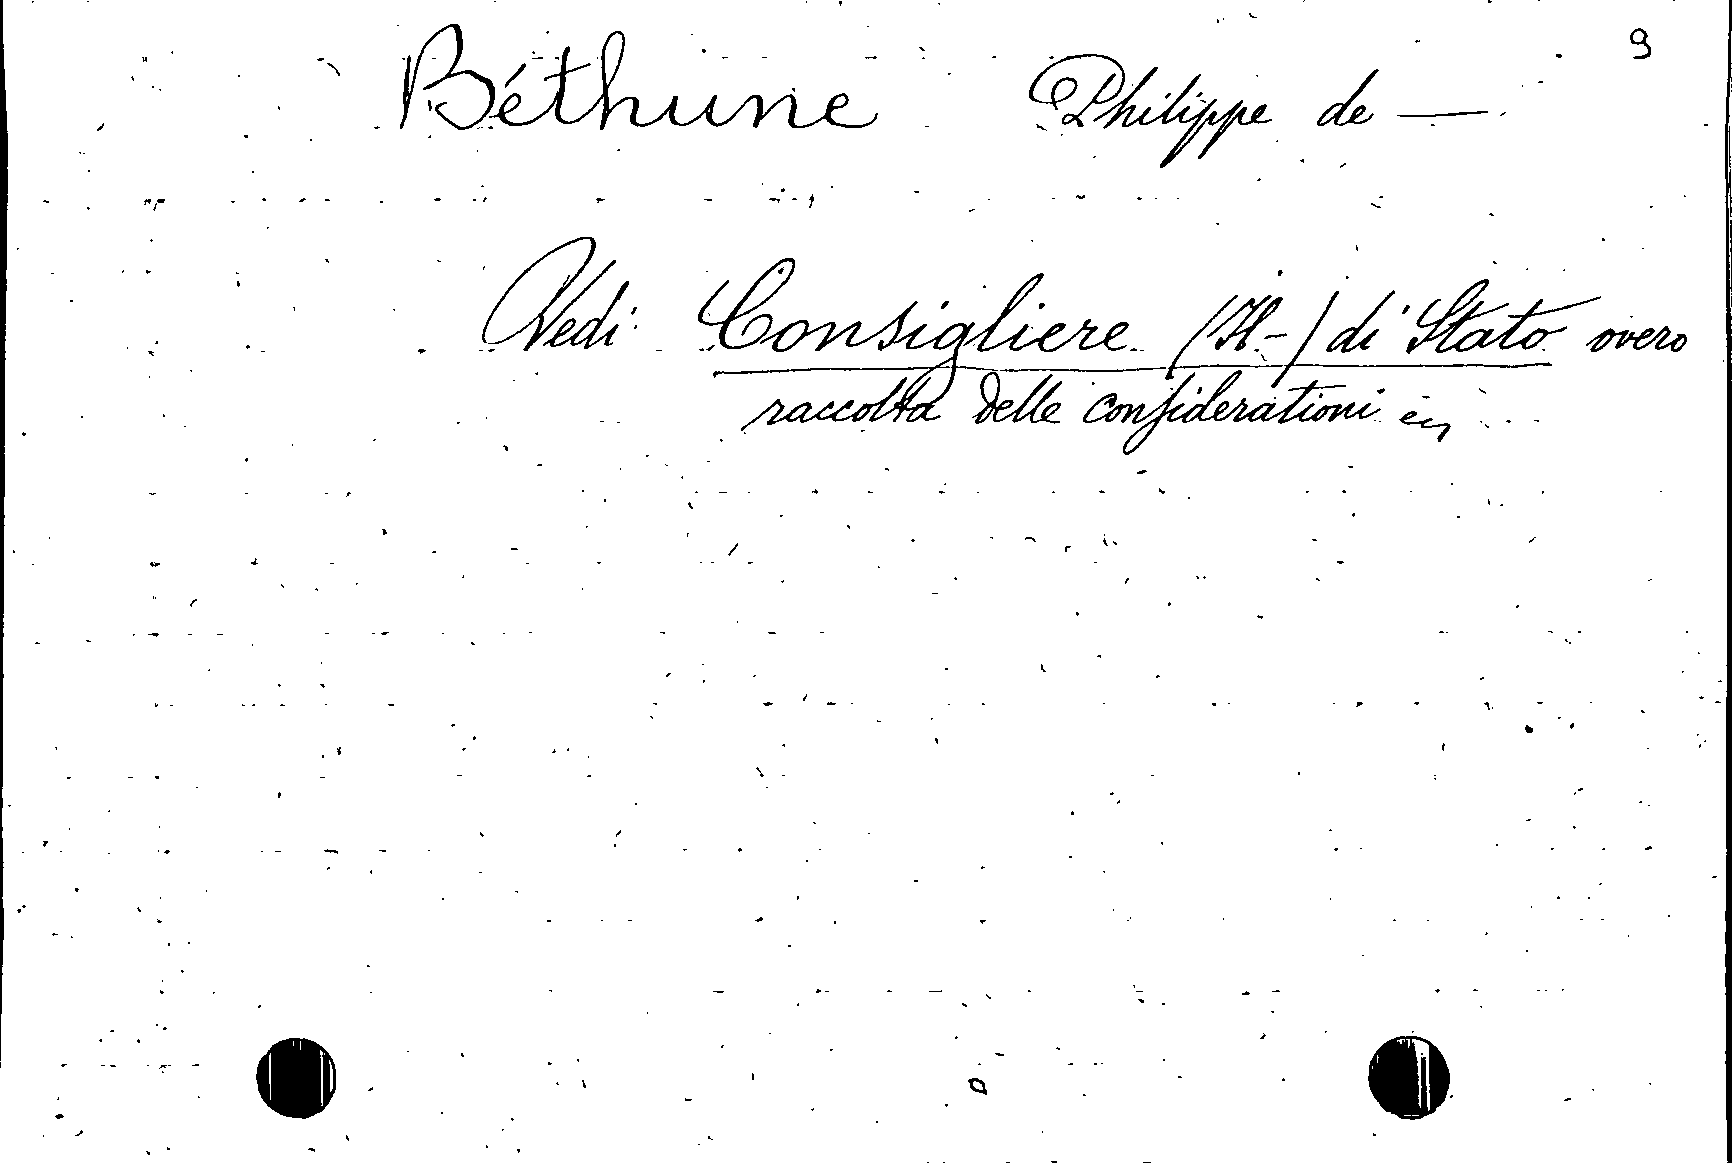 9
Béthune Philippe de —
Vedi Consigliere (Il-) di Stato overo
raccolta delle considerationi